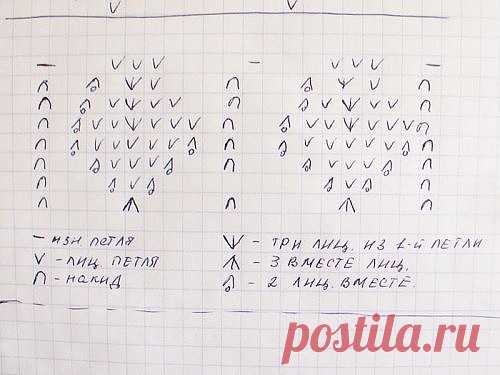 — изн петля
V - лиц. петля
∩ - накид
- три лиц. из 1-й петли
- 3 вместе лиц.
- 2 лиц. вместе.
postila.ru